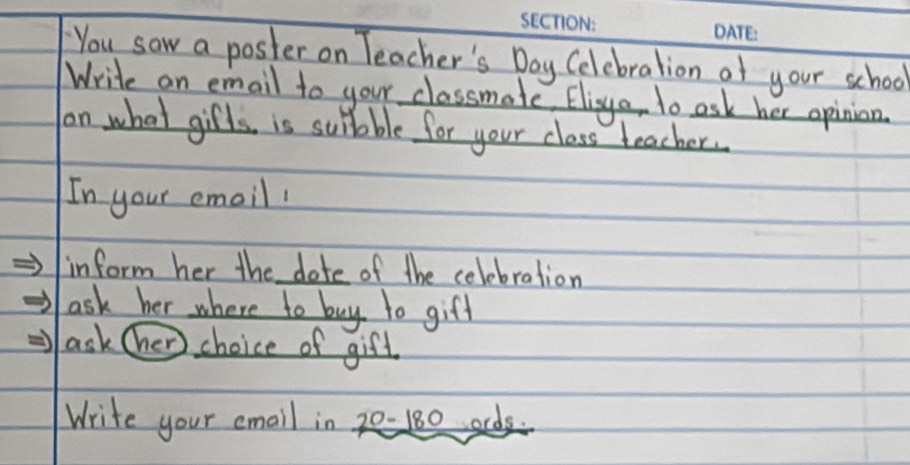 SECTION: DATE:
You saw a poster on Teacher's Day Celebration at your school
Write an email to your classmate, Elisya, to ask her opinion.
on what gifts is suitable for your class teacher.
In your email:
⇒ inform her the date of the celebration
⇒ ask her where to buy to gift
⇒ ask her choice of gift.
Write your email in 20-180 words.